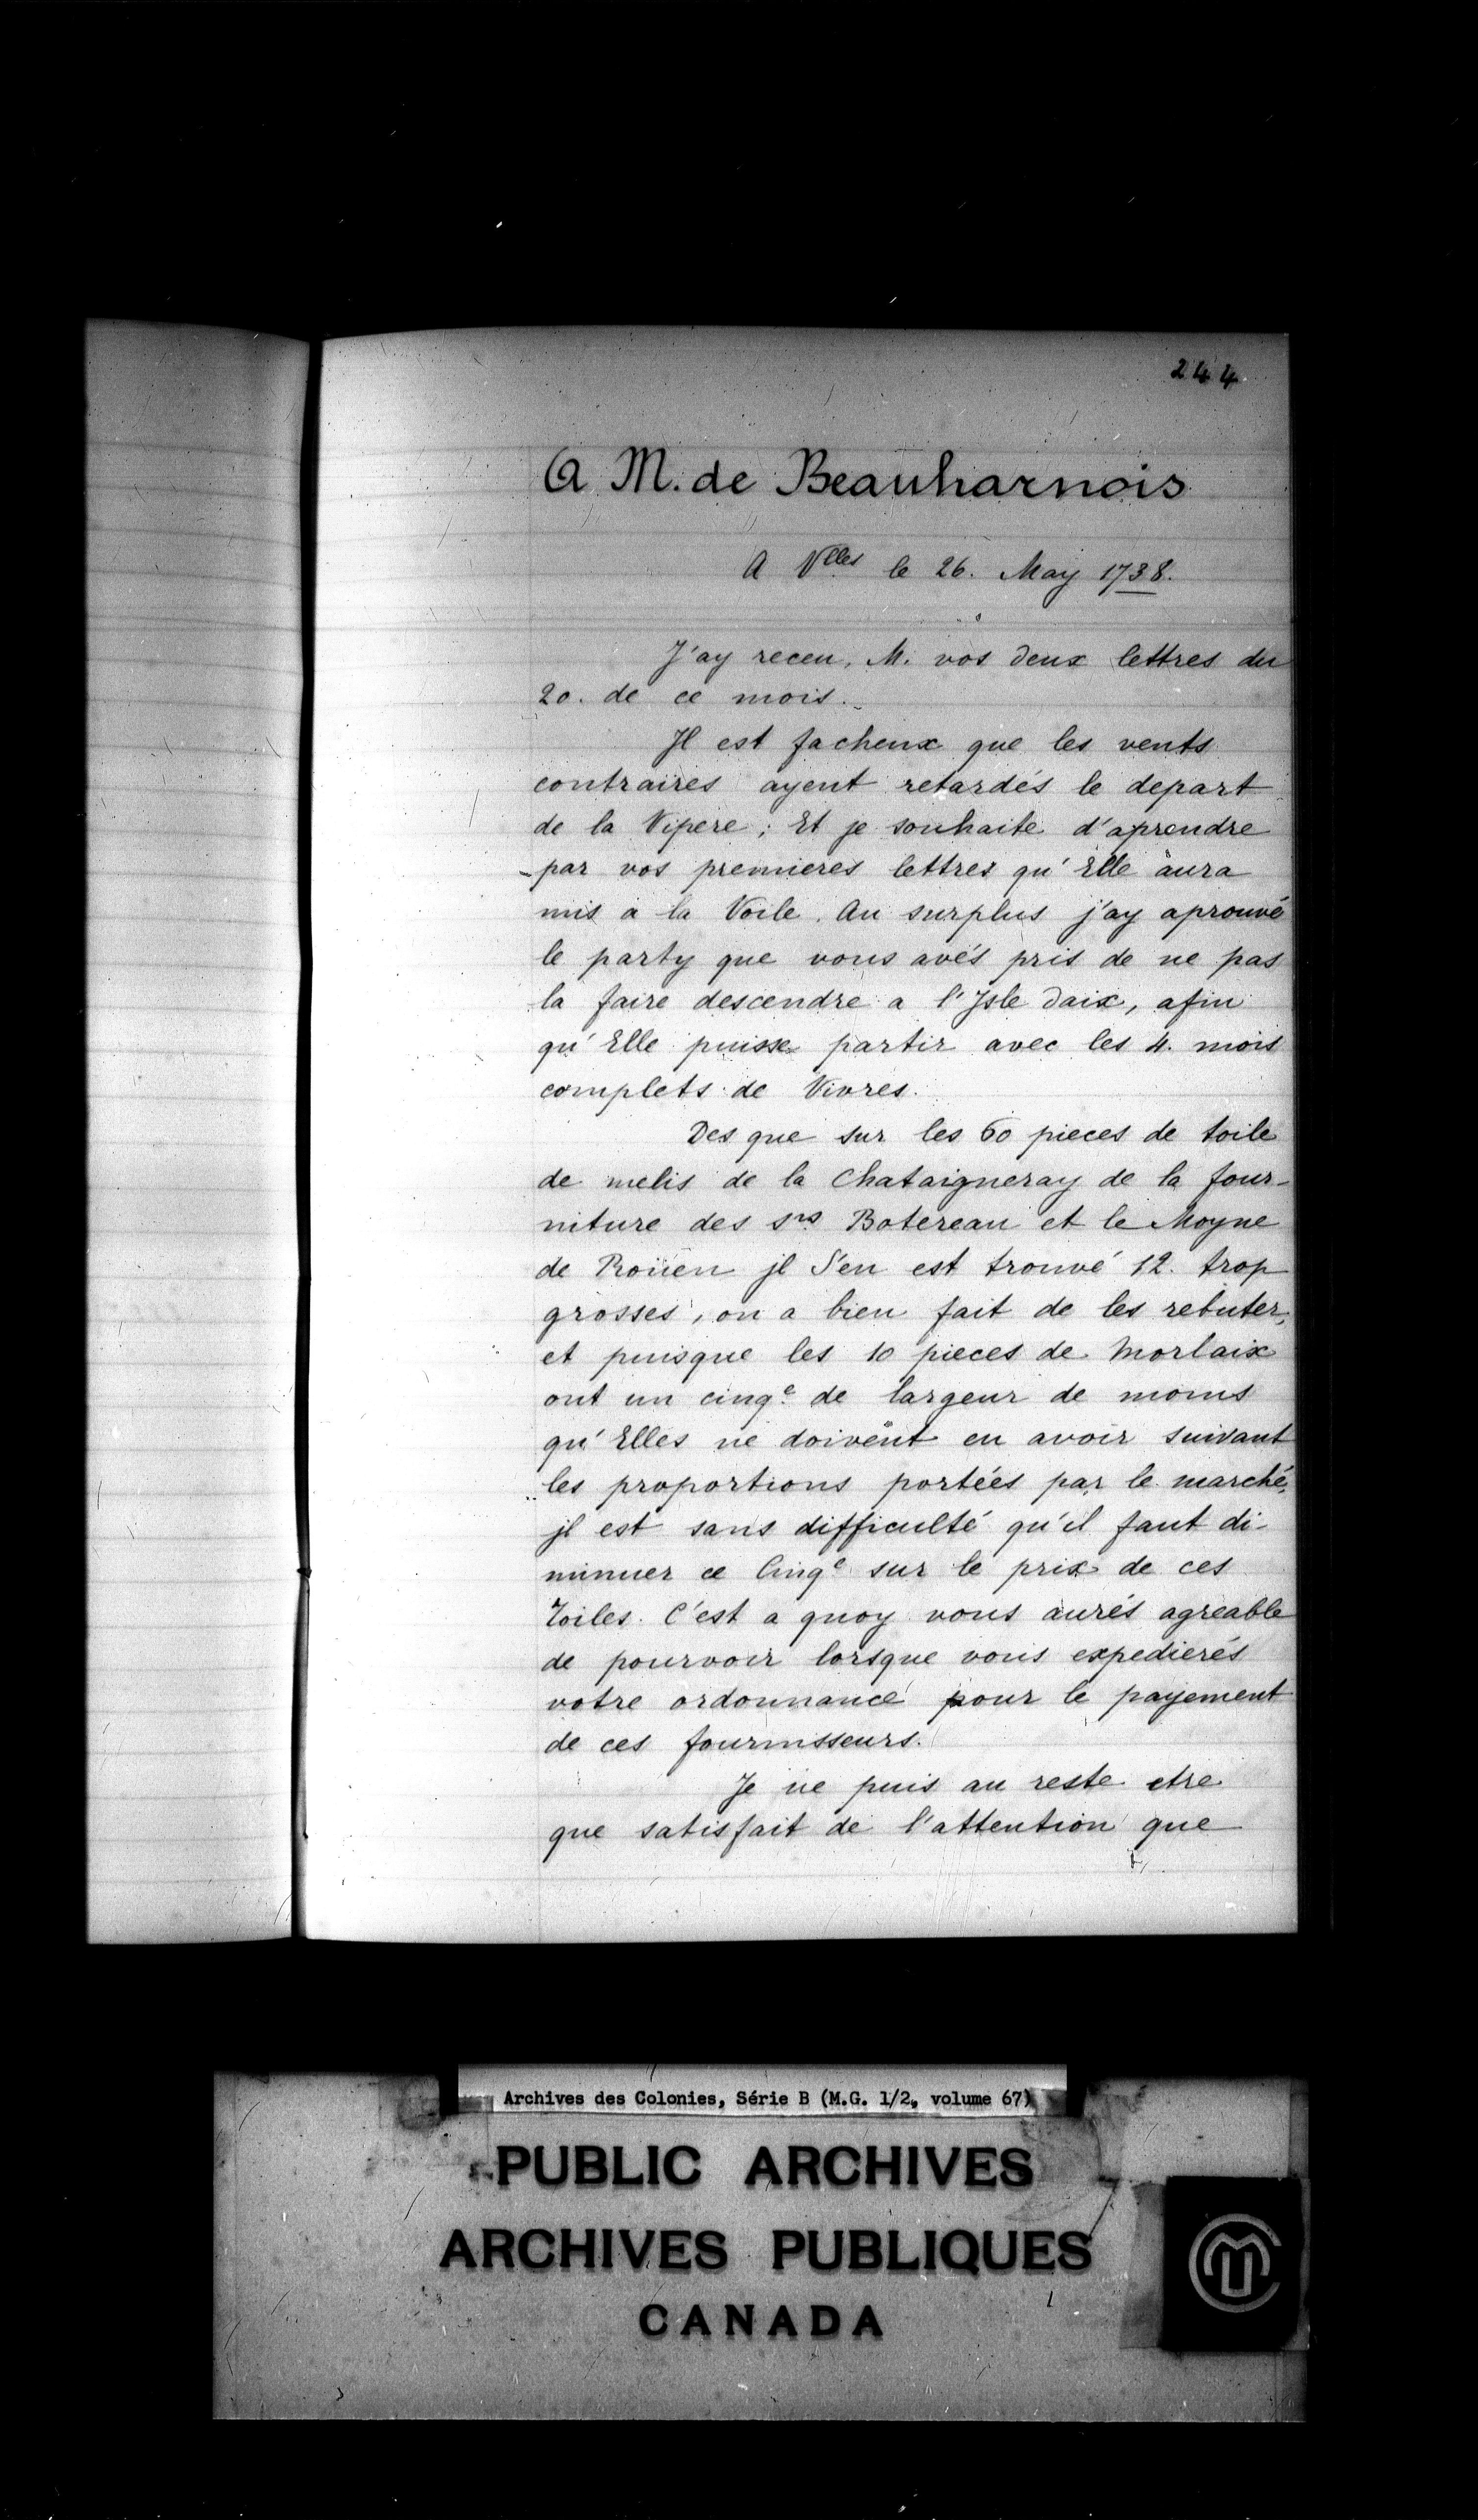 244
A M. de Beauharnois
A Vlles le 26. May 1738.
J'ay receu, M. vos deux lettres du
20. de ce mois.
Jl est facheux que les vents
contraires ayent retardés le depart
de la Vipere; Et je souhaite d'aprendre
par vos premieres lettres qu'Elle aura
mis a la Voile. Au surplus j'ay aprouvé
le party que vous avés pris de ne pas
la faire descendre a l'Jsle daix, afin
qu'Elle puisse partir avec les 4. mois
complets de Vivres.
Des que sur les 60 pieces de toile
de melis de la Chataigneray de la four-
niture des srs Botereau et le Moyne
de Roüen jl s'en est trouvé 12. trop
grosses, on a bien fait de les rebuter,
et puisque les 10 pieces de Morlaix
ont un cinqe de largeur de moins
qu'Elles ne doivent en avoir suivant
les proportions portées par le marché,
jl est sans difficulté qu'il faut di-
minuer ce Cinqe sur le prix de ces
Toiles. C'est a quoy vous aurés agreable
de pourvoir lorsque vous expedierés
votre ordonnance pour le payement
de ces fournisseurs.
Je ne puis au reste etre
que satisfait de l'attention que
Archives des Colonies, Série B (M.G. 1/2, volume 67)
PUBLIC ARCHIVES
ARCHIVES PUBLIQUES
CANADA